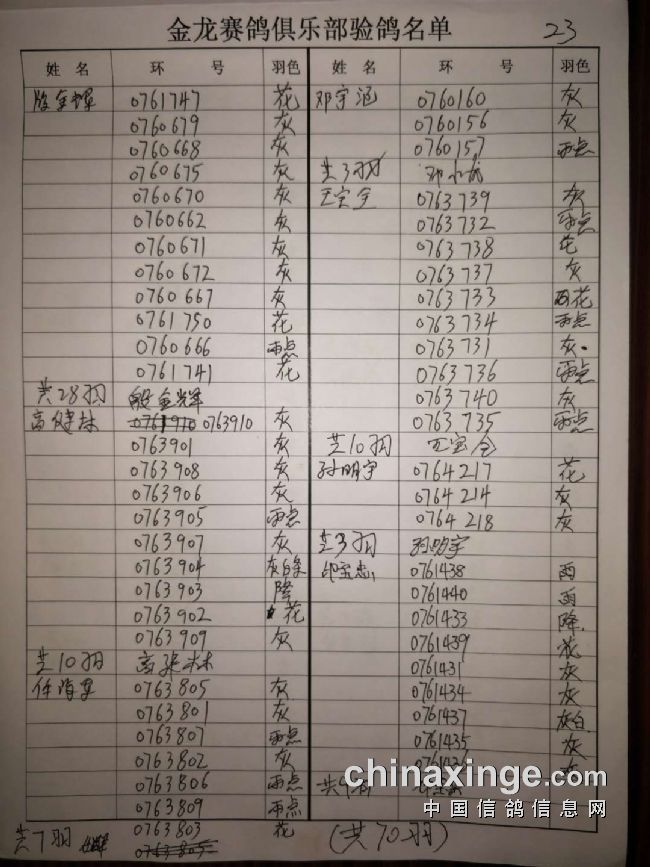 金龙赛鸽俱乐部验鸽名单
23
姓 名 环 号 羽色
0761747 花
0760679 灰
0760668 灰
0760675 灰
0760670 灰
0760662 灰
0760671 灰
0760672 灰
0760667 灰
0761750 花
0760666 雨点
0761741 花
共28羽 殷金辉
高健林 0763910 灰
0763901 灰
0763908 灰
0763906 灰
0763905 雨点
0763907 灰
0763904 灰白条
0763903 降
0763902 花
0763909 灰
共10羽
0763805 灰
0763801 灰
0763807 雨点
0763802 灰
0763806 雨点
0763809 雨点
共7羽 0763803 花
姓 名 环 号 羽色
邓宇涵 0760160 灰
0760156 灰
0760157 雨点
共3羽
王宝全 0763739 灰
0763732 雨点
0763738 花
0763737 灰
0763733 雨花
0763734 雨点
0763731 灰
0763736 雨点
0763740 灰
0763735 雨点
共10羽 王宝全
孙明宇 0764217 花
0764214 灰
0764218 灰
共3羽 孙明宇
0761438 雨
0761440 雨
0761433 降
0761439 花
0761431 灰
0761434 灰
0761437 灰白
0761435 灰
共9羽
(共70羽)
chinaxinge.com
中国信鸽信息网